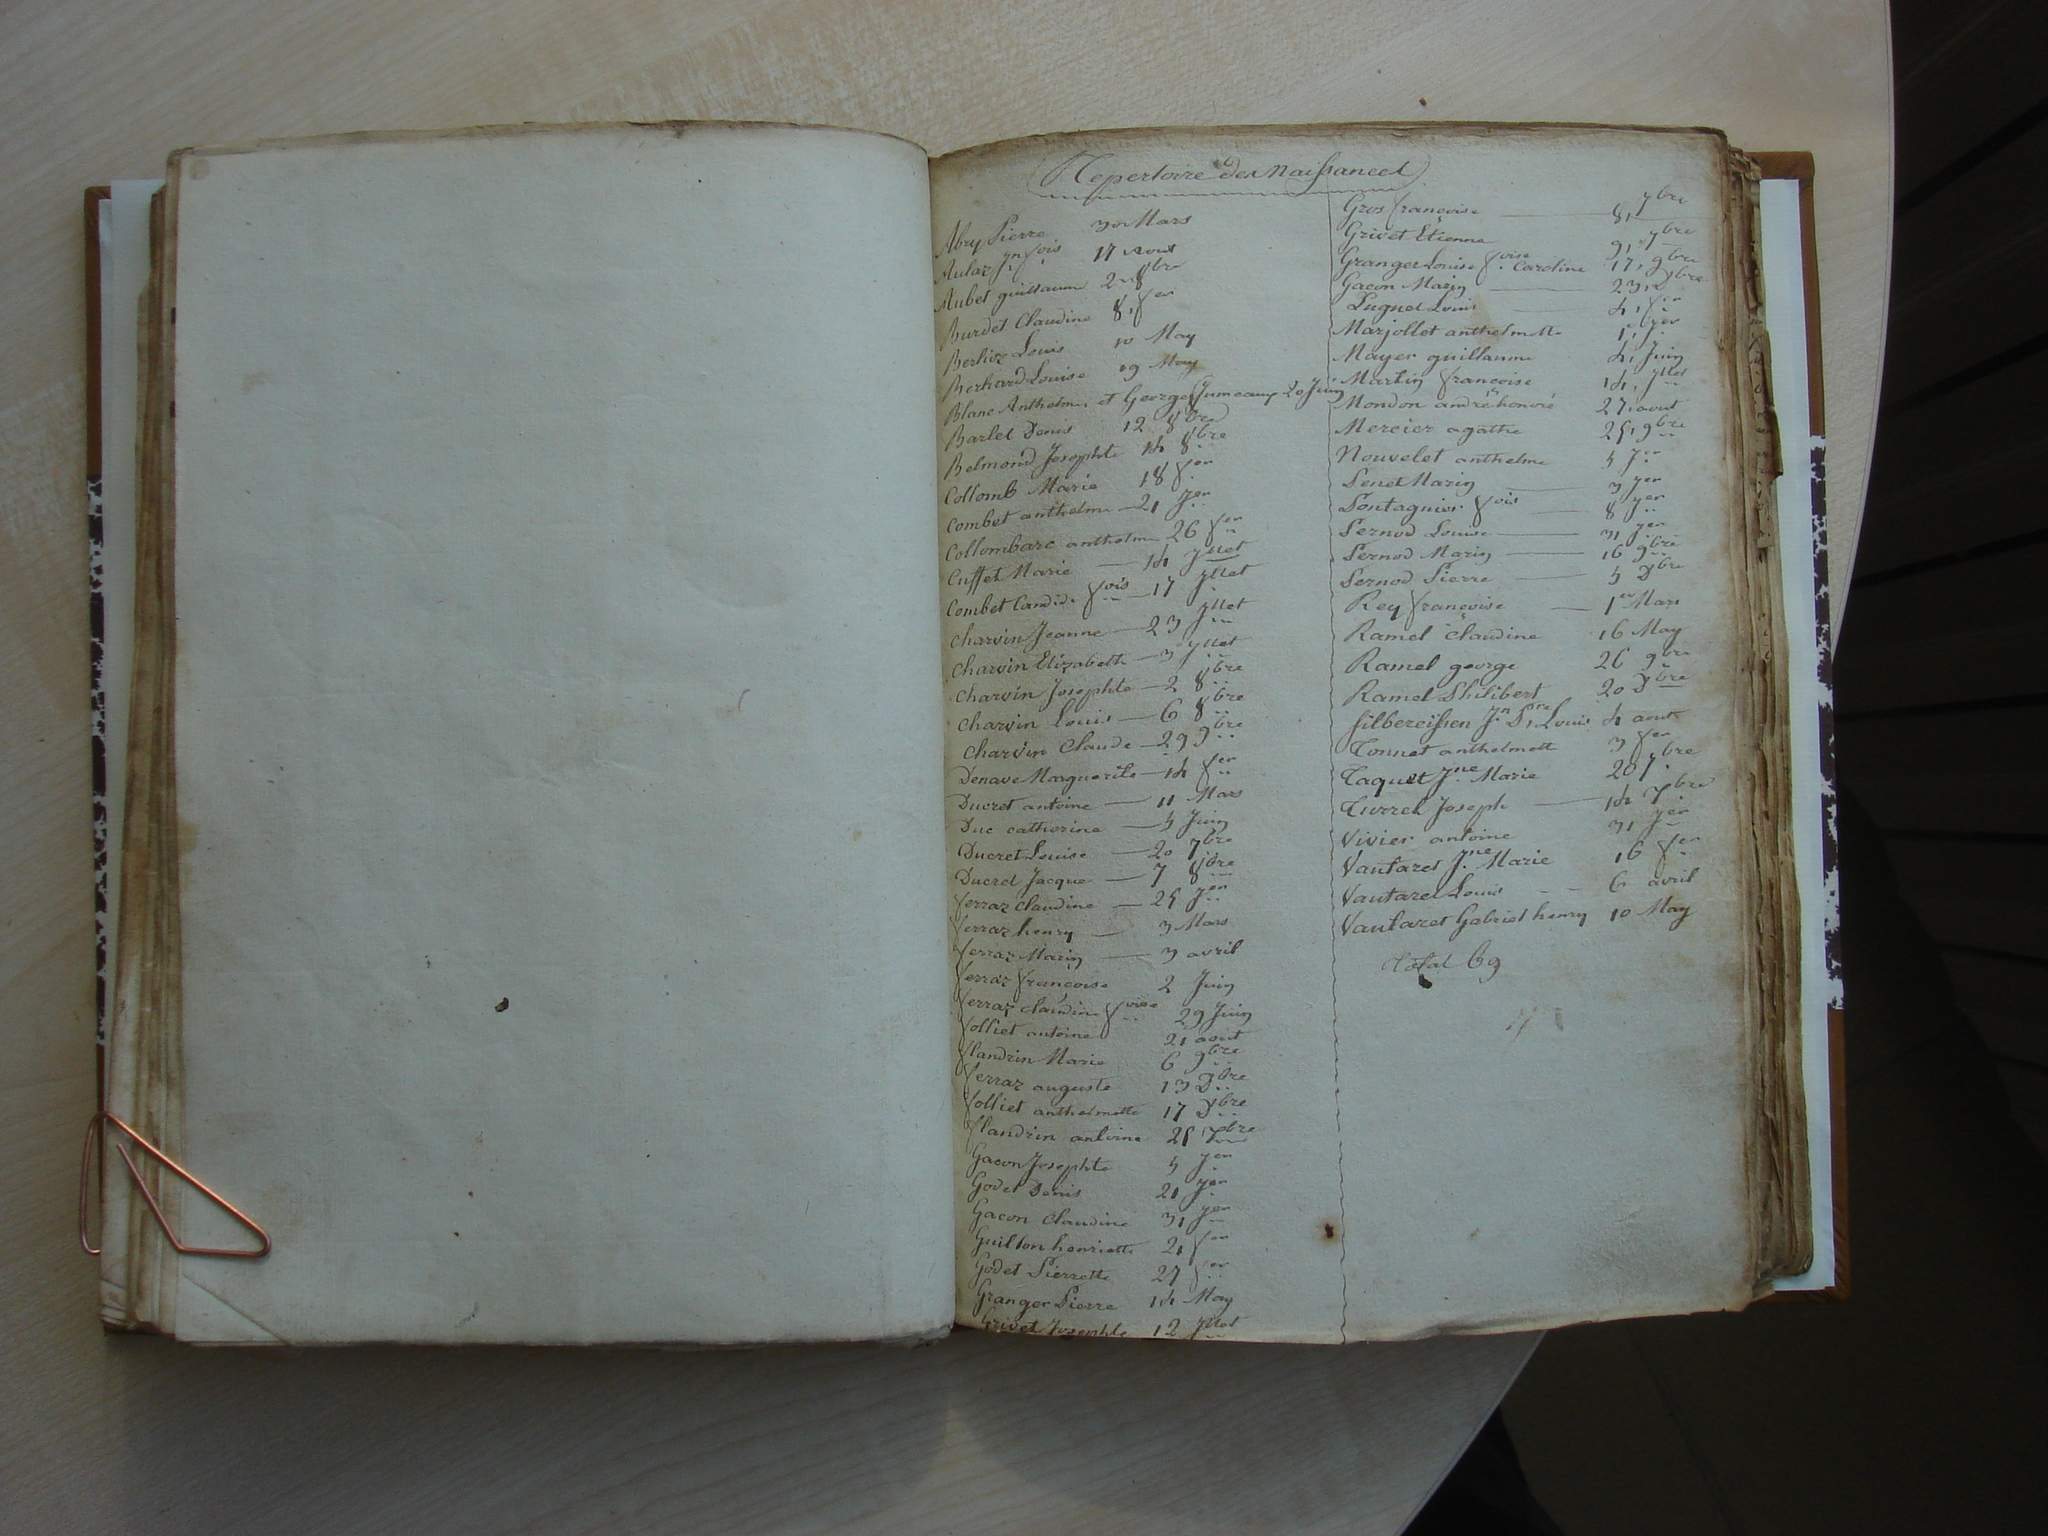 Repertoire des Naissances
Abry Pierre 30 Mars
Aular Jn fois 17 aout
Aubet guillaume 8bre
Burdet Claudine 8, fer
Berlioz Louis 10 May
Berhard Louise 19 May
Blanc Anthelme et George Jumeaux 20 Juin
Barlet Denis 12 8bre
Belmond Josephte 14 8bre
Collomb Marie 18 fer
Combet anthelme 21 Jer
Collombarc anthelm 26 fer
Cuffet Marie 14 Jllet
Combet Candide fois 17 Jllet
Charvin Jeanne 23 Jllet
Charvin Elizabeth 3 Jllet
Charvin Josephte 2 8bre
Charvin Louis 6 8bre
Charvin Claude 29 9bre
Denave Marguerite 14 fer
Ducret antoine 11 Mars
Duc catherine 5 Juin
Ducret Louise 20 7bre
Ducret Jacque 7 8bre
ferraz Claudine 25 Jer
ferraz henry 3 Mars
ferraz Marin 3 avril
ferraz françoise 2 Juin
ferraz claudine foise 29 Juin
folliet antoine 21 aout
flandrin Marie 6 9bre
ferraz auguste 13 Dbre
folliet anthelmette 17 Dbre
flandrin antoine 25
Gacon Josephte 5 Jer
Godet Denis 21 Jer
Gacon Claudine 31 Jer
Guilton henriette 21 fer
Godet Pierrette 27 fer
Granger Pierre 14 May
Grivet Josephte 12 Jllet
Gros françoise 8, 7bre
Grivet Etienne 9, 7bre
Granger Louise foise Caroline 17, 9bre
Gacon Marin 23,
Lugnet Louis 4, fer
Marjollet anthelmette 1, Jer
Mayer guillaume 4, Juin
Martin françoise 14, Jllet
Mondon andré honoré 27, aout
Mercier agathe 25, 9bre
Nouvelet anthelme 5 Jer
Penet Marin 3 Jer
Pontagnier fois 8 Jer
Pernod Louise 31 Jer
Pernod Marin 16 9bre
Pernod Pierre 5 Dbre
Rey françoise 1er Mars
Ramel Claudine 16 May
Ramel george 26 9bre
Ramel Philibert 20 Dbre
Silbereissen Jn Pre Louis 4 aout
Tonnet anthelmette 3 fer
Taquet Jne Marie 20 7bre
Turrel Joseph 14 7bre
Vivier antoine 31 Jer
Vantaret Jne Marie 16 fer
Vantaret Louis 6 avril
Vantaret Gabriel henry 10 May
Total 69